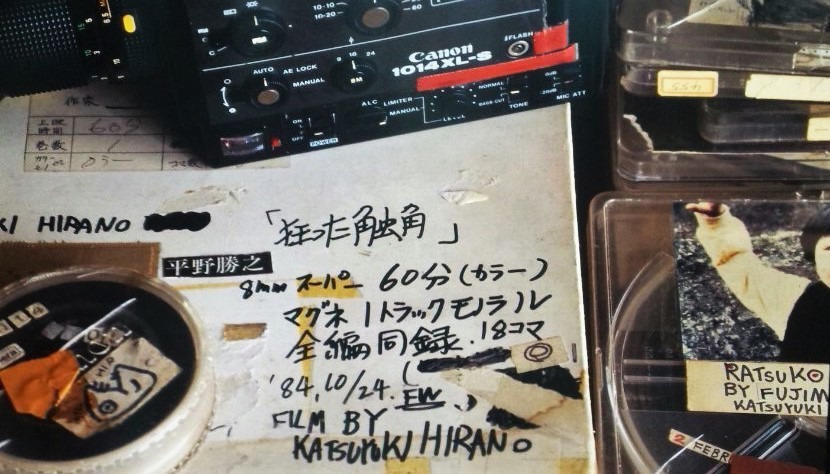 10-10
10-20
60
Canon
1014XL-S
FLASH
AUTO
AE LOCK
MANUAL
9 18 24
ALC
LIMITER
MANUAL
LEVEL
NORMAL
BASS CUT
TONE
MIC ATT
ON
OFF
POWER
作家
上映時間 60分
巻数 1
カラー
KI HIRANO
「狂った触角」
平野勝之
8mm スーパー 60分(カラー)
マグネ1トラックモノラル
全編同録.18コマ
'84.10/24.
FILM BY
KATSUYUKI HIRANO
RATSUKO
BY FUJIM
KATSUYUKI
2 FEBR